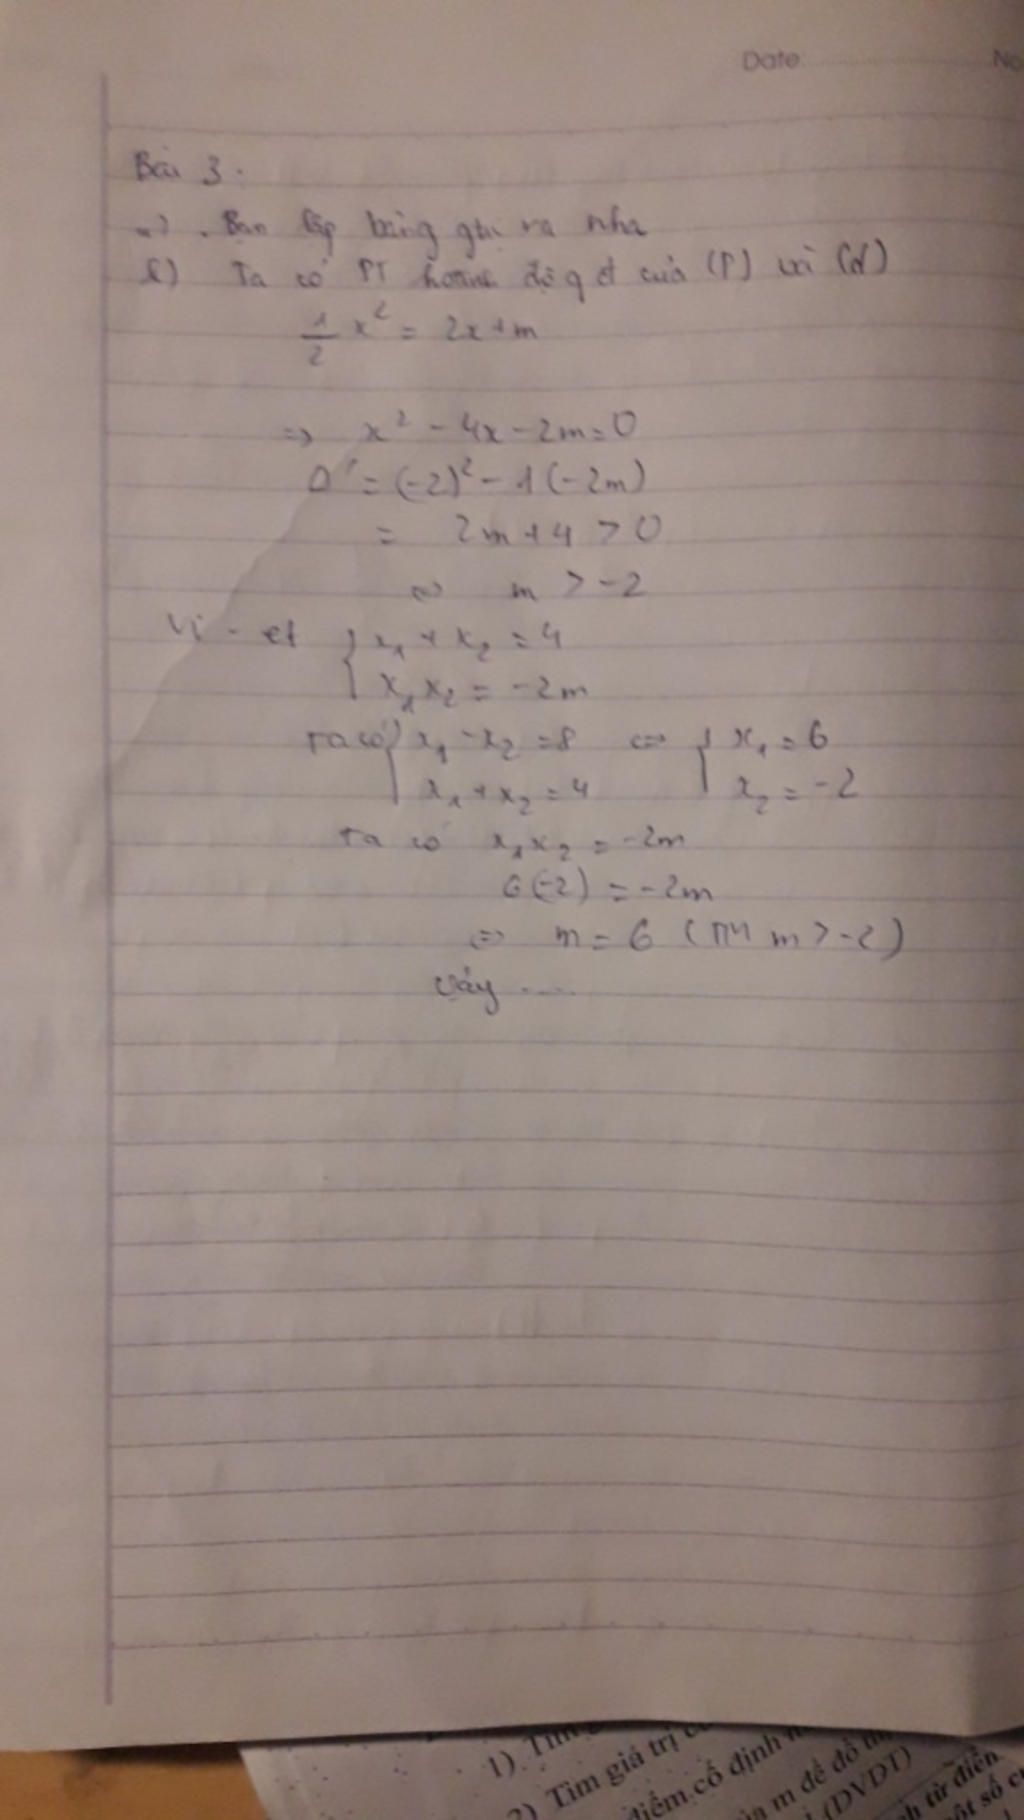 Date No
Bài 3:
a) . Bạn lập bảng ghi ra nha
b) Ta có PT hoành độ gđ của (P) và (d)
1/2 x² = 2x+m
=> x² - 4x - 2m = 0
Δ' = (-2)² - 1(-2m)
= 2m + 4 > 0
<=> m > -2
Vi - et { x₁ + x₂ = 4
x₁x₂ = -2m
Ta có { x₁ - x₂ = 8 <=> { x₁ = 6
x₁ + x₂ = 4 x₂ = -2
Ta có x₁x₂ = -2m
6(-2) = -2m
<=> m = 6 (TM m > -2)
Vậy ....
1). Tìm
2) Tìm giá trị
điểm cố định
m để đồ
(DVDT)
từ điểm
số